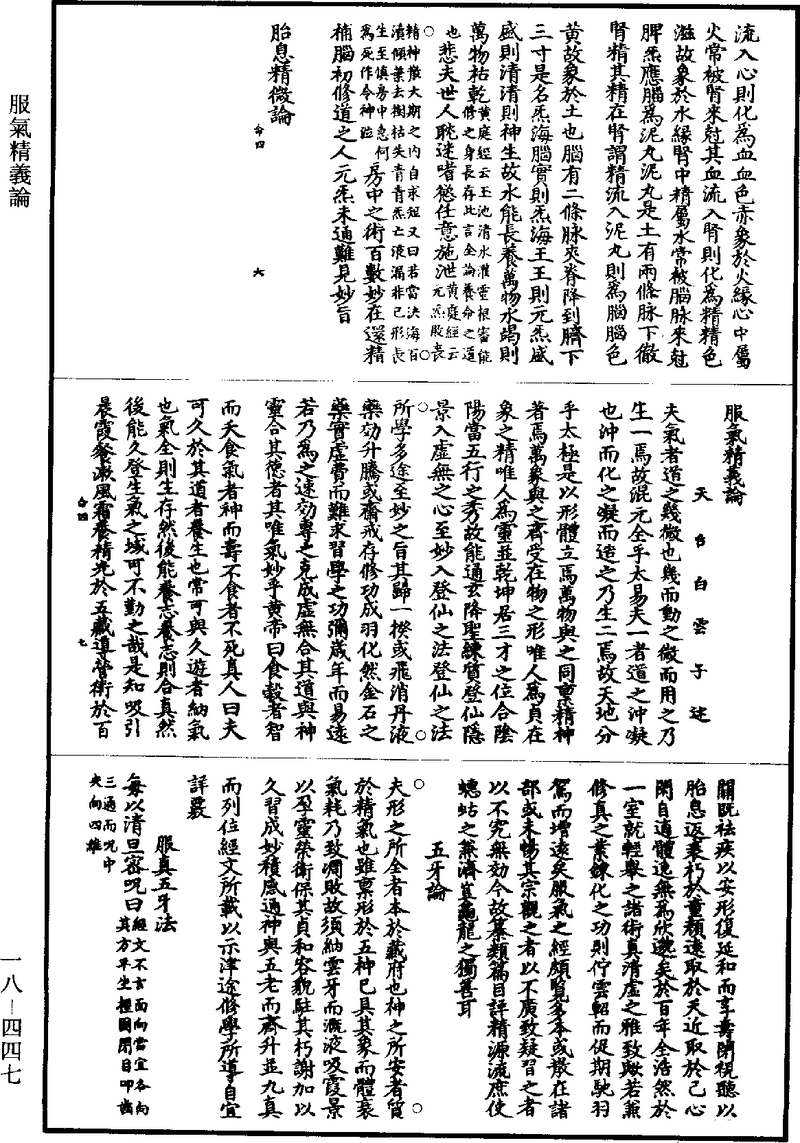 流入心則化為血血色赤象於火緣心中屬
火常被腎來尅其血流入腎則化為精精色
滋故象於水緣腎中精屬水常被腦脉來尅
脾炁應腦為泥丸泥丸是土有兩條脉下徹
腎精其精在腎謂精流入泥丸則為腦腦色
黃故象於土也腦有二條脉夾脊降到臍下
三寸是名炁海腦實則炁海王王則元炁盛
盛則清清則神生故水能長養萬物水竭則
萬物枯乾黃庭經云玉池清水灌靈根審能
修之身長存此言全論養命之道
也悲夫世人耽迷嗜慾任意施泄黃庭經云
元炁股喪
精神散大期之內自求短又曰若當決海百
瀆傾葉去樹枯失青青炁亡液漏非己形長
生至慎房中急何
為死作令神泣房中之術百數妙在還精
補腦初修道之人元炁未通難見妙旨
胎息精微論
命四 六
服氣精義論
天台白雲子述
夫氣者道之幾微也幾而動之微而用之乃
生一焉故混元全乎太易夫一者道之沖凝
也沖而化之凝而造之乃生二焉故天地分
乎太極是以形體立焉萬物與之同稟精神
著焉萬象與之齊受在物之形唯人為貞在
象之精唯人為靈並乾坤居三才之位合陰
陽當五行之秀故能通玄降聖練質登仙隱
景入虛無之心至妙入登仙之法登仙之法
所學多途至妙之旨其歸一揆或飛消丹液
藥効升騰或齋戒存修功成羽化然金石之
藥實虛費而難求習學之功彌歲年而易遠
若乃為之速効專之克成虛無合其道與神
靈合其德者其唯氣妙乎黃帝曰食穀者智
而夭食氣者神而壽不食者不死真人曰夫
可久於其道者養生也常可與久遊者納氣
也氣全則生存然後能養志養志則合真然
後能久登生氣之域可不勤之哉是知吸引
晨霞餐漱風霜養精光於五藏導營衛於百
命四 七
關既祛疾以安形復延和而享壽閉視聽以
胎息返衰朽於童顏遠取於天近取於己心
閑自適體逸無為欣邈矣於百年全浩然於
一室就輕舉之諸術真清虛之雅致歟若兼
修真之業鍊化之功則佇雲軺而促期馳羽
駕而增遠矣服氣之經頗覽多本或散在諸
部或未暢其宗觀之者以不廣致疑習之者
以不究無効今故纂類篇目詳精源流庶使
蟪蛄之兼濟豈龜龍之獨善耳
五牙論
夫形之所全者本於藏府也神之所安者質
於精氣也雖稟形於五神已具其象而體衰
氣耗乃致凋敗故須納雲牙而溉液吸霞景
以孕靈榮衛保其貞和容貌駐其朽謝加以
久習成妙積感通神與五老而齊升並九真
而列位經文所載以示津途修學所導自宜
詳覈
服真五牙法
每以清旦密呪曰經文不言面向當宜各向
其方平坐握固閉目叩齒
三通而呪中
央向四維
服氣精義論
一八－四四七